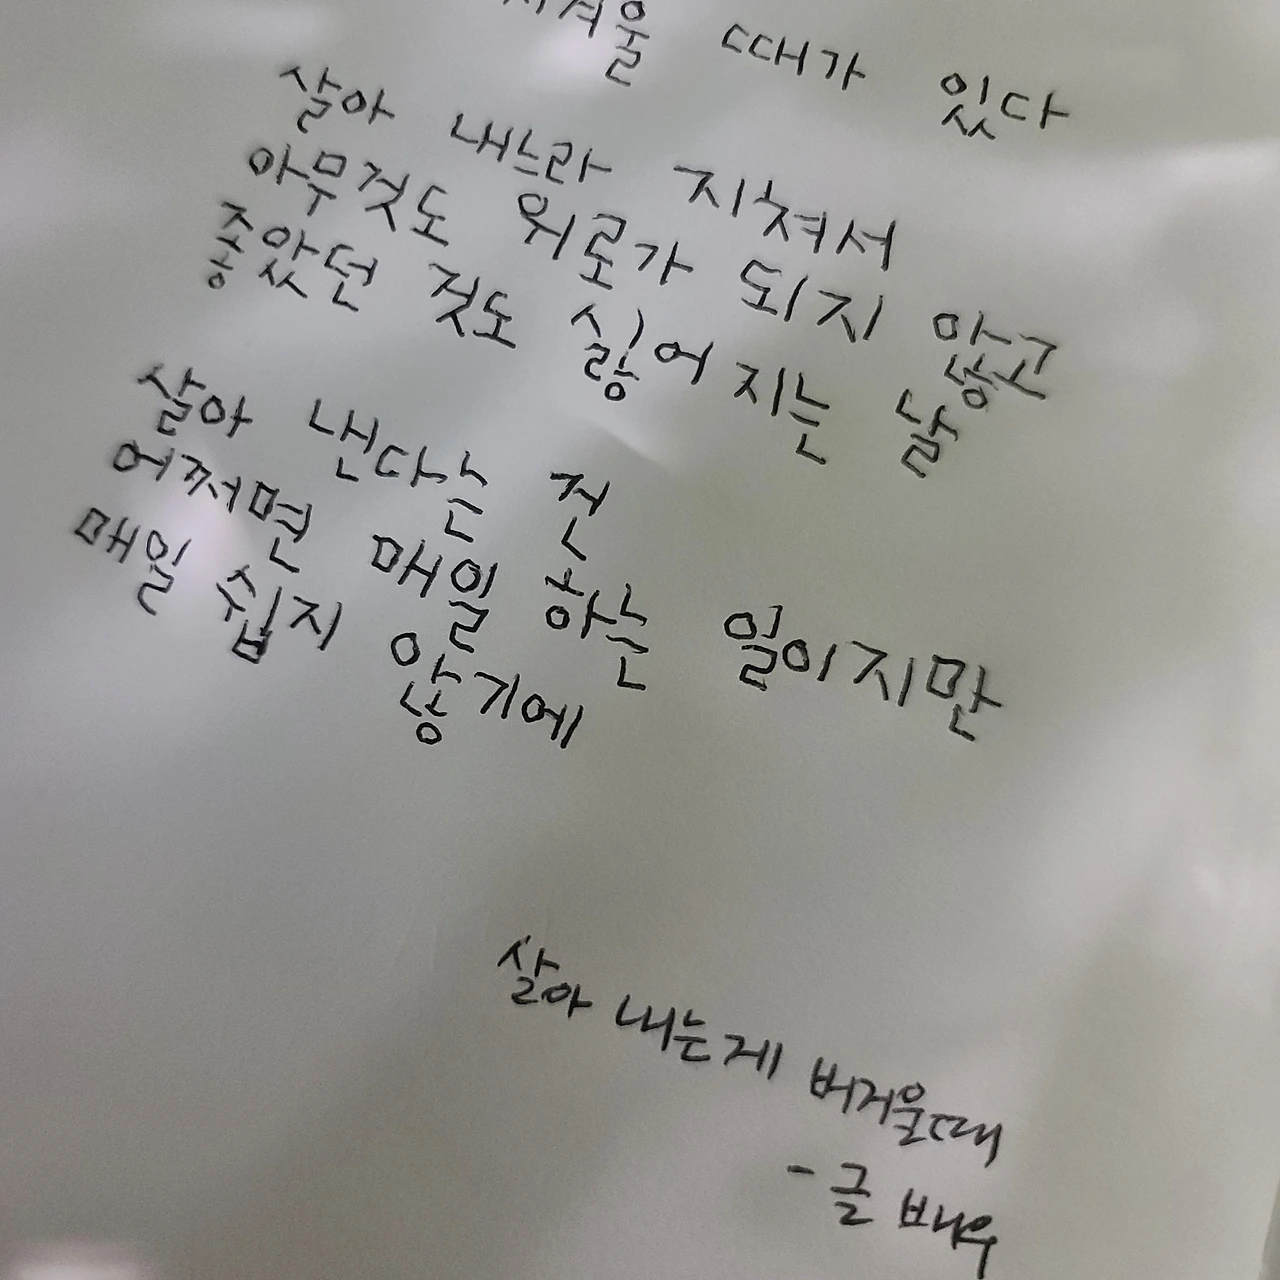 때가 있다
살아 내느라 지쳐서
아무것도 위로가 되지 않고
좋았던 것도 싫어 지는 날
살아 낸다는 건
어쩌면 매일 하는 일이지만
매일 쉽지 않기에
살아 내는게 버거울때
- 글 배우